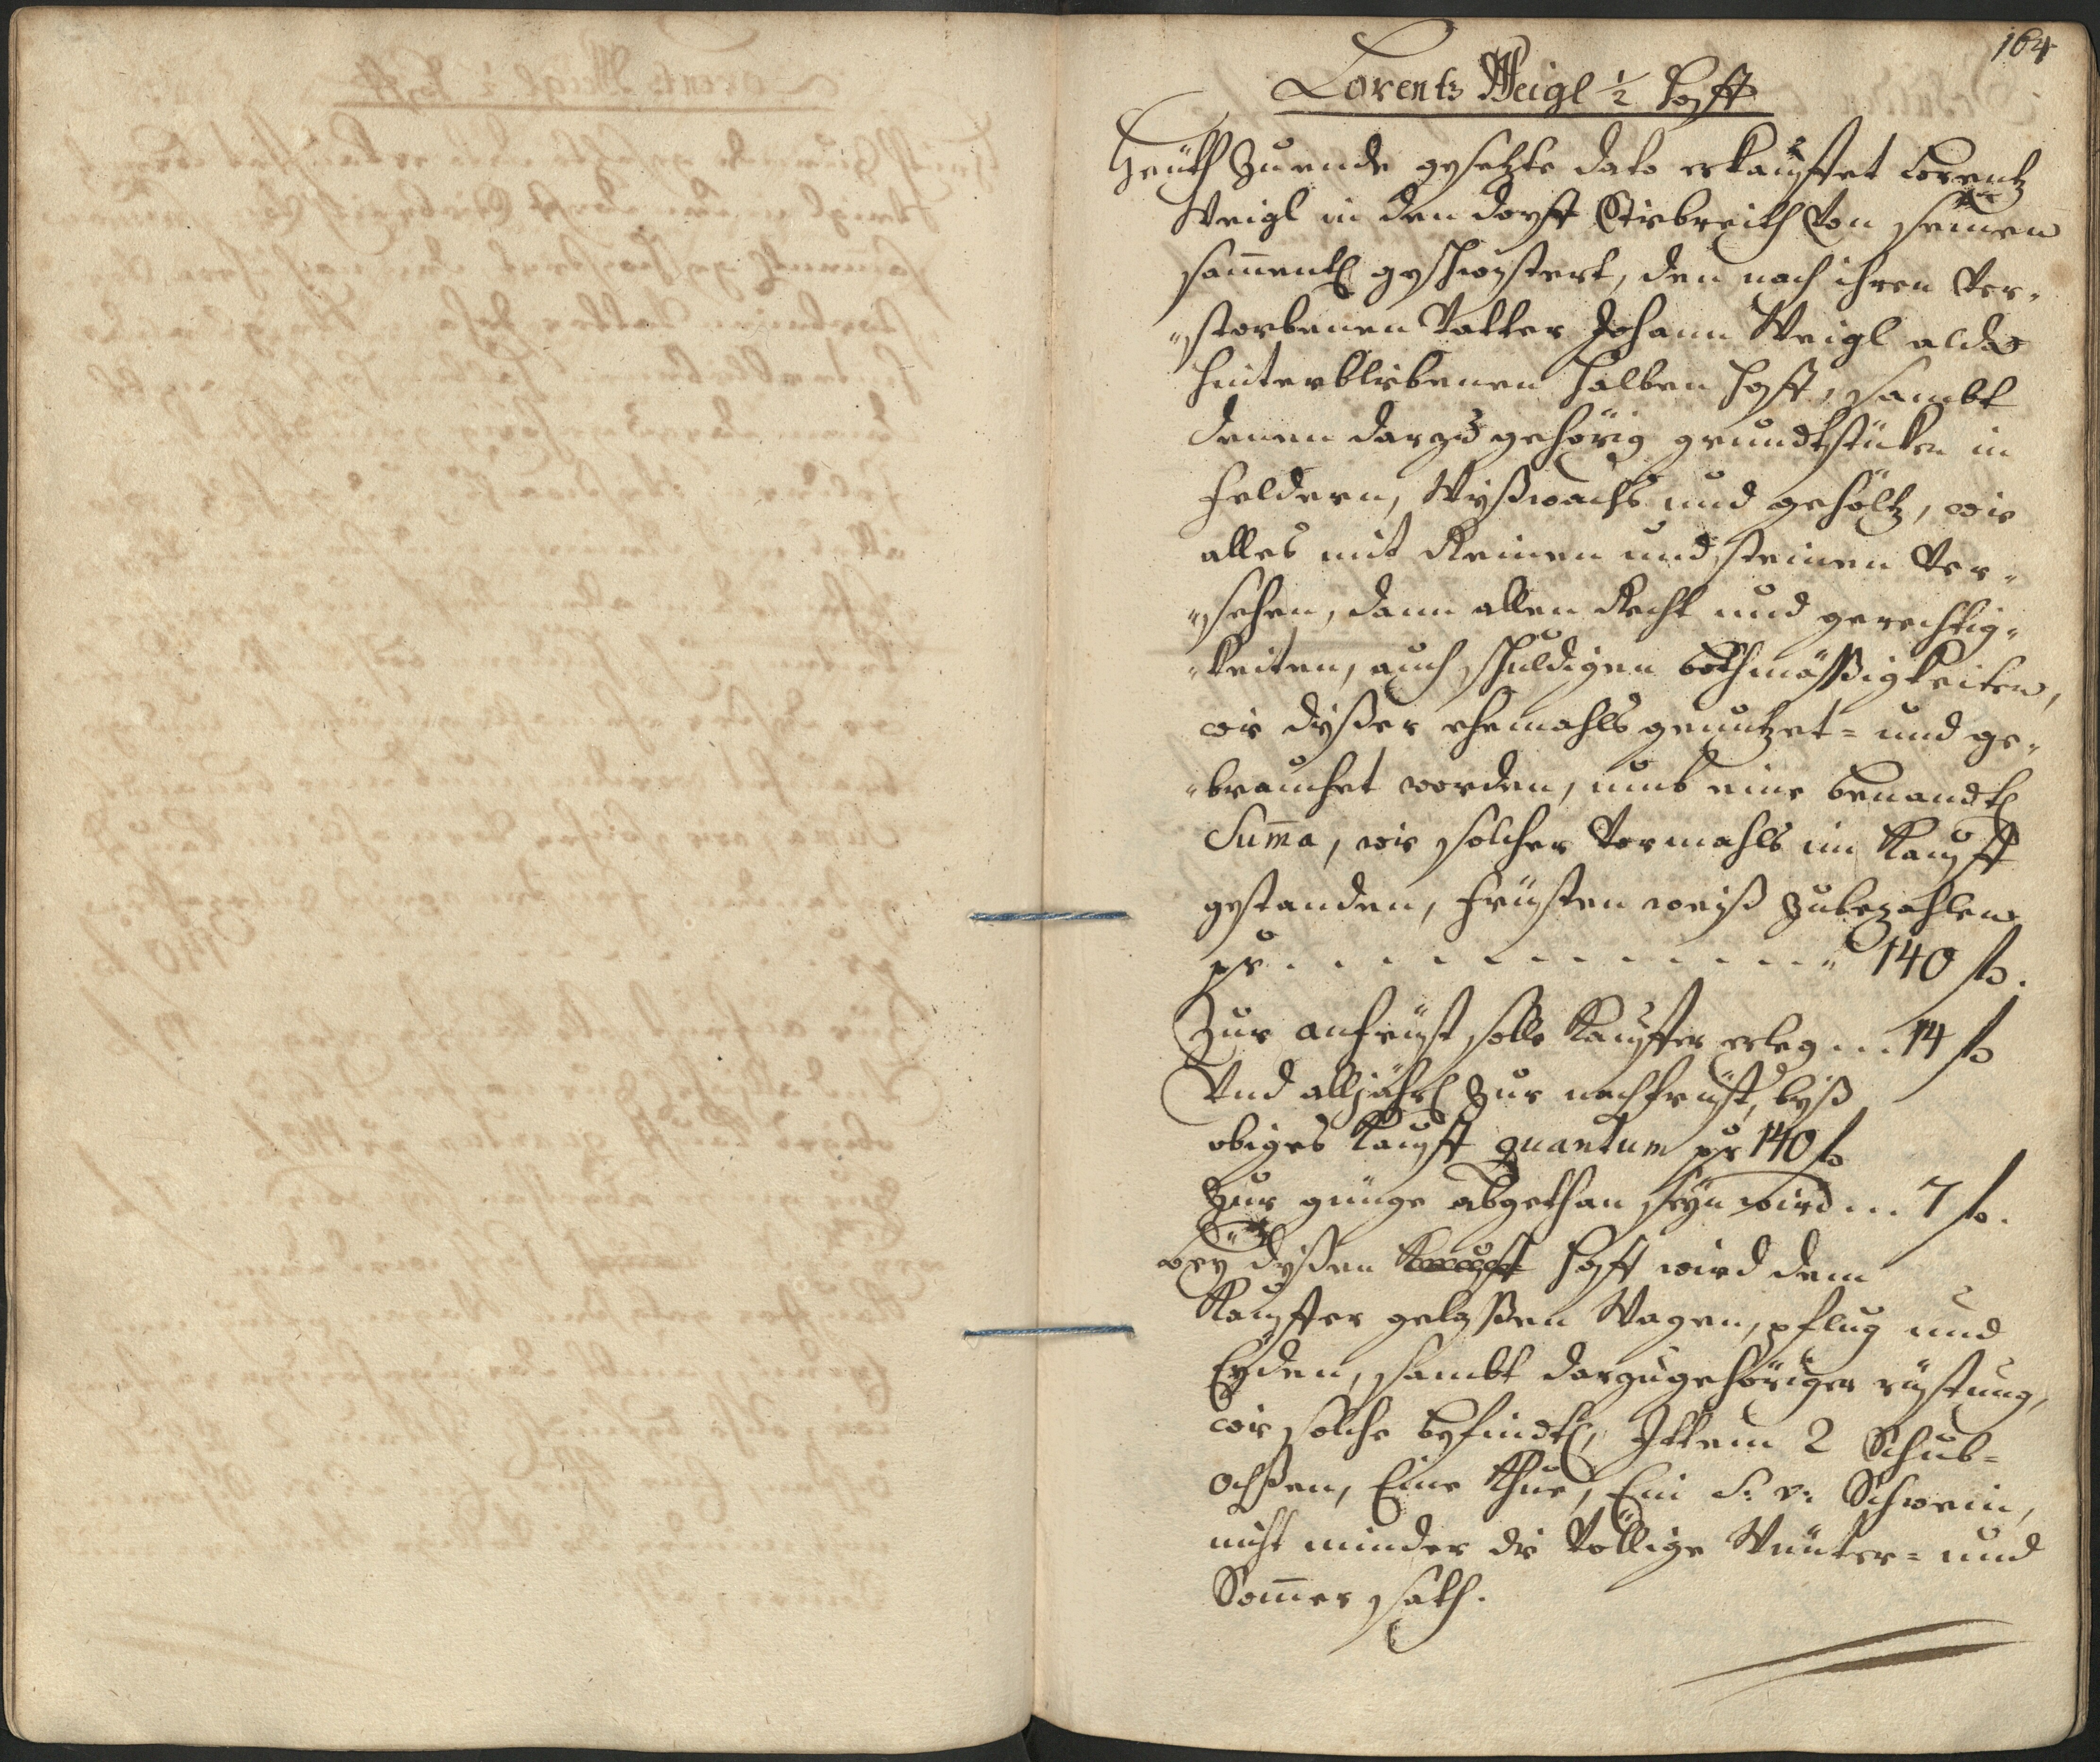 164
Lorentz Weigl ½ hoff
Heüth zu ende gesetzte dato erkauffet Lorentz
Weigl in den dorff von seinen
sam̄entl geschwistert, den nach ihren ver„
„storbenen Vatter Johann Weigl alda
hinterblibenen halben hoff, sambt
denen darzu gehörig grundtstüken in
feldern, Wyßwachs und gehöltz, wie
alles mit Reinen und steinen ver„
„sehen, dann allen Recht und gerechtig„
„keiten, auch schuldigen bothmäßigkeiten,
wie dyßer ehemahls genutzet= und ge„
„brauchet worden, umb eine benandtl
Sum̄a, wie solcher vormahls im Kauff
gestanden, früsten weiß zubezahlen
pr . . . . . . . . . . . „ 140 ß.
Zur anfrüst solle Kauffer erleg . . . 14 ß
Und alljährl zur nachfrüst, byß
obiges Kauff quantum pr 140 ß
zur gnüge abgethan seyn wird . . . 7 ß.
bey dyßen Kauff hoff wird dem
Kauffer gelaßen Wagen, pflug und
Eyden, sambt darzugehöriger rüstung,
wie solche befindtl, Ittem 2 Schub=
ochßen, Eine Khue, Ein S: v: Schwein,
nicht minder die Völlige Wünter= und
Som̄er sath.